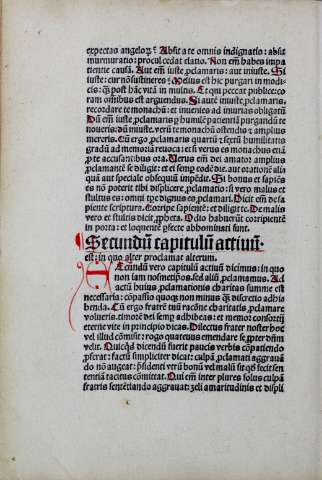 expectas angelorꝫ ⁊ Absit a te omnis indignatio: absit
murmuratio: procul cedat elatio. Non em̄ habes impa
tientie causā. Aut em̄ iuste ꝓclamaris: aut iniuste. Si
iuste: cur nō sustineres ⁊ Melius est hic purgari in modi
cis: qꝫ post hāc vitā in multis. Et qui peccat publice: co
ram omnibus est arguendus. Si aūt iniuste ꝓclamaris.
recordare te monachū: et inuenies ad iniurias obligatū
Dū em̄ iuste ꝓclamaris ⁊ humilē patientiā purgandū te
noueris: dū iniuste. verū te monachū ostendens ⁊ amplius
mereris. Cū ergo ꝓclamaris quartū ⁊ sextū humilitatis
gradū ad memoriā reuoca: et si verus es monachus etiā
ꝓ te accusantibus ora. Verus em̄ dei amator amplius
ꝓclamante se diligit: et ei semp code die. aut orationē ali
quā aut speciale obsequiū impēdit. Si bonus et sapiēs
es nō poterit tibi displicere ꝓclamatio: si vero malus et
stultus es: omni tꝑe dignus es ꝓclamari. Dicit em̄ de sa
piente scriptura. Corripe sapientē: et diliget te. De malis
vero et stultis dicit ꝓpheta. Odio habuerūt corripientē
in porta: et loquentē ꝑfecte abhominati sunt.
Secundū capitulū actiuū.
est: in quo alter proclamat alterum.
Secundū vero capitulū actiuū dicimus: in quo
non iam nosmetipos. sed aliū ꝓclamamus. Ad
actū huius ꝓclamationis charitas summe est
necessaria: copassio quoqꝫ non minus qꝫ discretio adhi
benda. Cū ergo fratrē tuū racōne charitatis ꝓclamare
volueris. timorē dei semp adhibeas: et memor consortij
eterne vite in principio dicas. Dilectus frater noster hoc
vel illud cōmisit: rogo quatenus emendare se ꝓpter deū
velit. Quicqd dicendū fuerit paucis verbis cōpatiendo
ꝓferat: factū simpliciter dicat: culpā ꝓclamati aggrauā
do nō augeat: ꝑsidenti vtrū bonū vel malū sit qd fecit sen
tentiā tacitus cōmittat. Qui em̄ inter plures solus culpā
fratris sentētiando aggrauat: zeli amaritudinis et displi